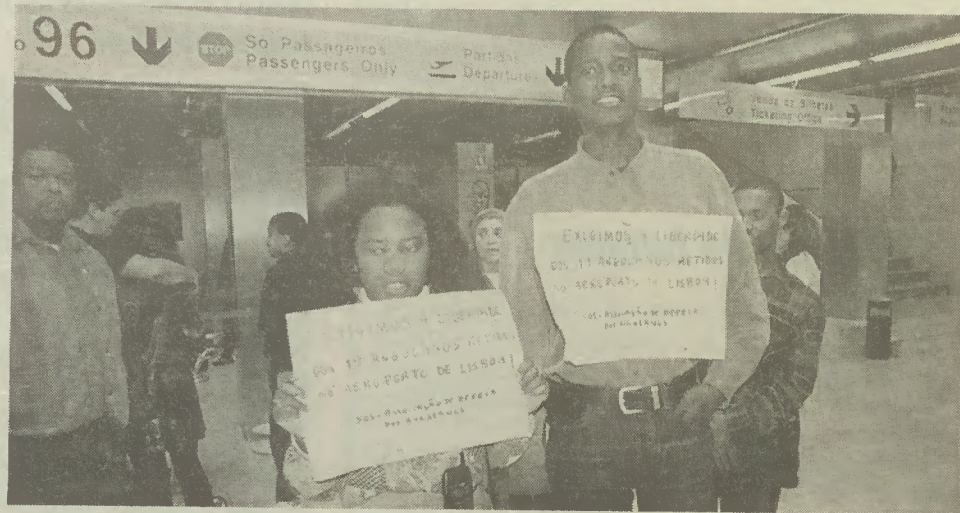 º96
STOP
Só Passageiros
Passengers Only
Partidas
Departures
Venda de Bilhetes
Ticketing Office
EXIGIMOS A LIBERDADE
DOS 19 ANGOLANOS RETIDOS
NO AEROPORTO DE LISBOA!
SOS-ASSOCIAÇÃO DE DEFESA
DOS ANGOLANOS
EXIGIMOS A LIBERDADE
DOS 19 ANGOLANOS RETIDOS
NO AEROPORTO DE LISBOA!
SOS-ASSOCIAÇÃO DE DEFESA
DOS ANGOLANOS